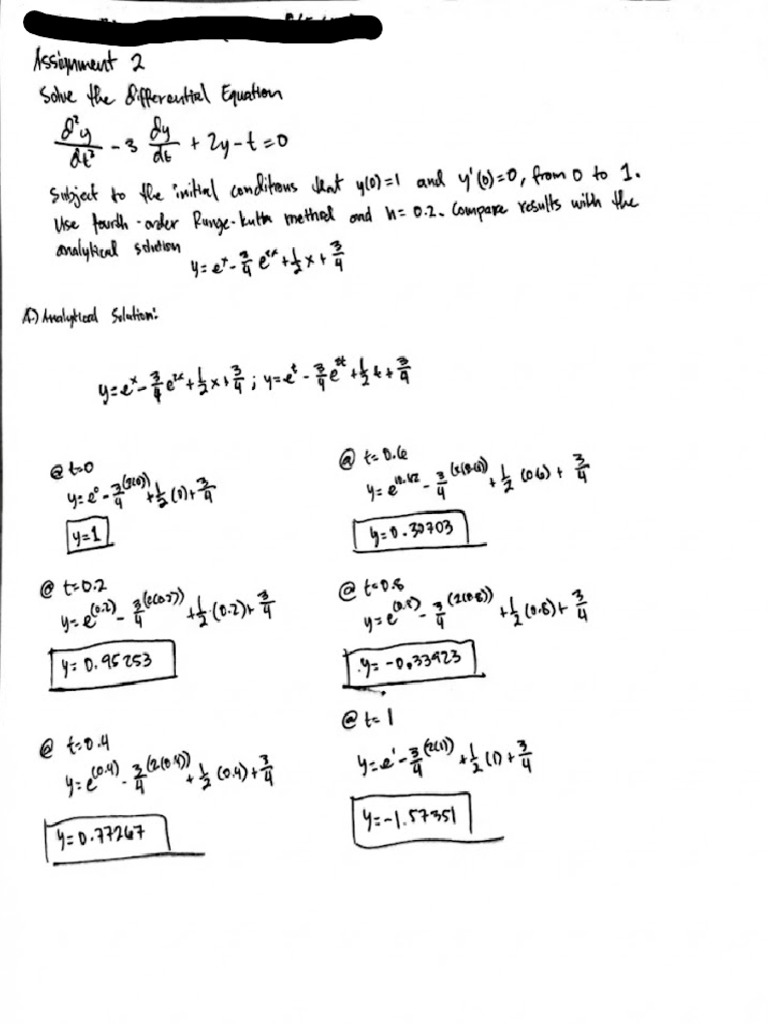 Assignment 2
Solve the Differential Equation
d²y/dt² - 3 dy/dt + 2y - t = 0
Subject to the initial conditions that y(0)=1 and y'(0)=0, from 0 to 1.
Use fourth-order Runge-Kutta method and h= 0.2. Compare results with the
analytical solution
y = e^x - 3/4 e^2x + 1/2 x + 3/4
A.) Analytical Solution:
y = e^x - 3/4 e^2x + 1/2 x + 3/4 ; y = e^t - 3/4 e^2t + 1/2 t + 3/4
@ t=0
y = e^0 - 3/4^(2(0)) + 1/2 (0) + 3/4
y=1
@ t=0.2
y = e^(0.2) - 3/4^(2(0.2)) + 1/2 (0.2) + 3/4
y= 0.95253
@ t=0.4
y = e^(0.4) - 3/4^(2(0.4)) + 1/2 (0.4) + 3/4
y= 0.77267
@ t= 0.6
- 3/4^(2(0.6)) + 1/2 (0.6) + 3/4
y= 0.30703
@ t=0.8
y = e^(0.8) - 3/4^(2(0.8)) + 1/2 (0.8) + 3/4
y= -0.33923
@ t= 1
y = e^1 - 3/4^(2(1)) + 1/2 (1) + 3/4
y= -1.57351